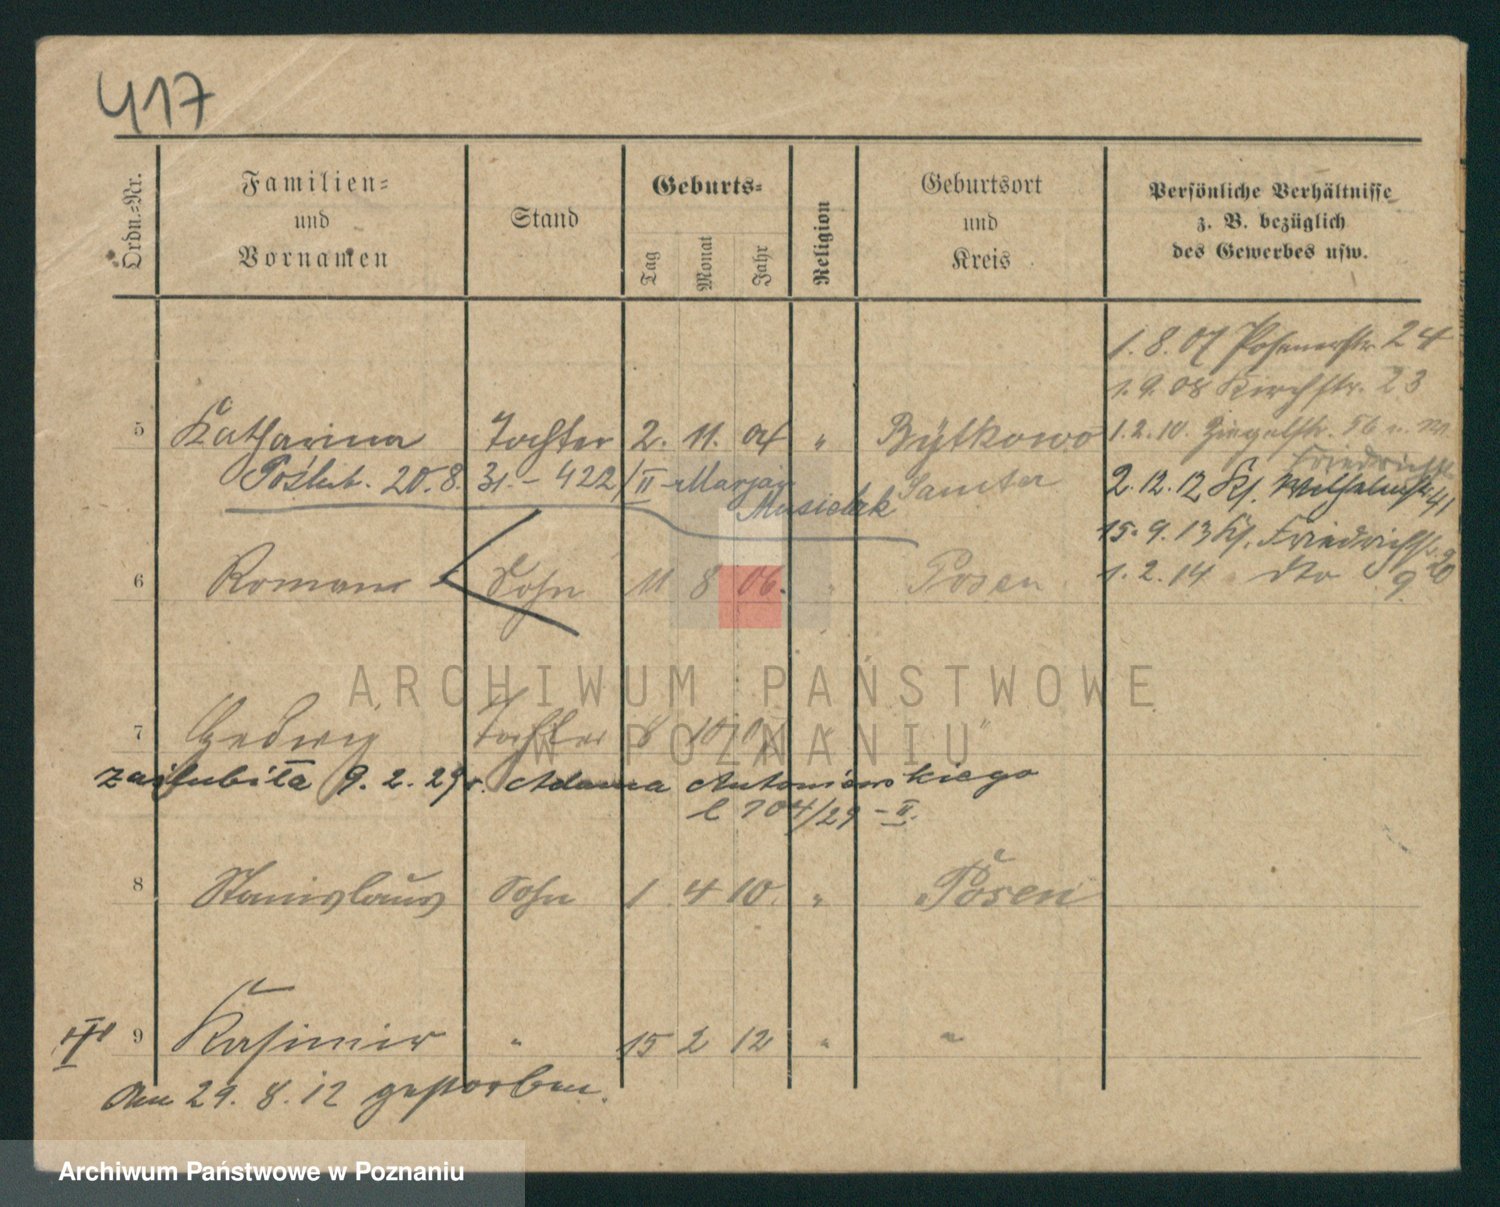 417
Ordn.-Nr.
Familien-
und
Vornamen
Stand
Geburts-
Tag
Monat
Jahr
Religion
Geburtsort
und
Kreis
Persönliche Verhältnisse
z. B. bezüglich
des Gewerbes usw.
1. 8. 07 Posenerstr. 24
1. 9. 08 Kirchstr. 23
5 Katharina Tochter 2. 11. 04 " Bytkowo 1. 2. 10. Ziegelstr.
Poślub. 20. 8. 31. - 422/II - Marjan Samter
Musielak
Friedrichstr.
2. 12. 12 Wilhelmstr. 41
15. 9. 13 Friedrichstr. 20
6 Roman Sohn 11 8 06. " Posen 1. 2. 14 dto 9
ARCHIWUM PAŃSTWOWE
W POZNANIU
7 Hedwig Tochter 8 10
zaślubiła 9. 2. 29 r. Adama Antoniewskiego
l 704/29 - II.
8 Stanislaus Sohn 1. 4 10. " Posen
9 Kasimir " 15 2 12 " "
Am 29. 8. 12 gestorben.
Archiwum Państwowe w Poznaniu